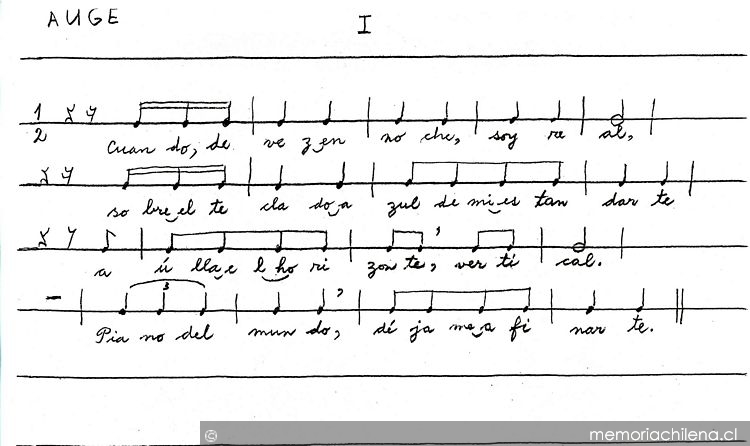 AUGE
I
1
2
Cuan do, de ve z en no che, soy re al,
so bre el te cla do a zul de mi es tan dar te
a ú lla e l ho ri zon te, ver ti cal.
3
Pia no del mun do, dé ja me a fi nar te.
© memoriachilena.cl